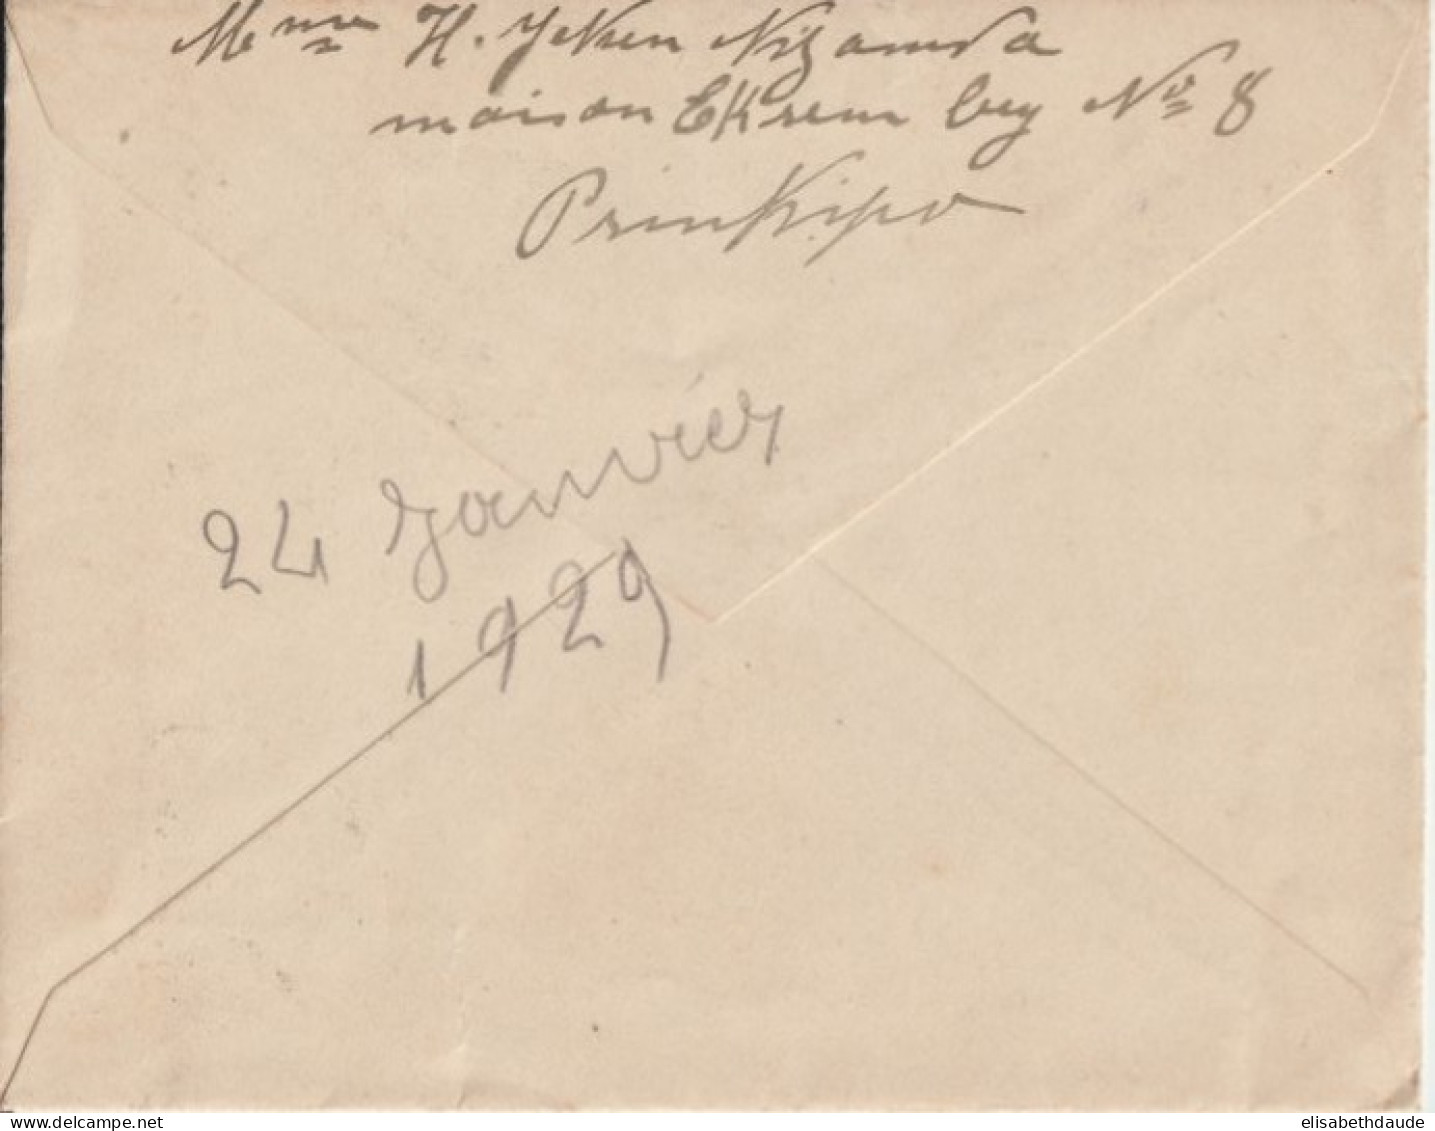 Mme H. Yeken Nizamda
maison Ekrem bey No 8
Prinkipo
24 Janvier
1929
www.delcampe.net
elisabethdaude